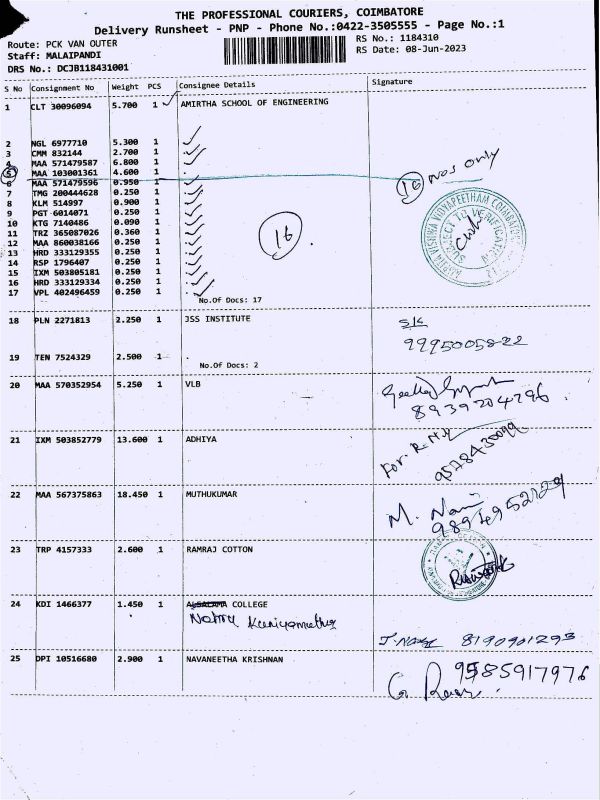 THE PROFESSIONAL COURIERS, COIMBATORE
Delivery Runsheet - PNP - Phone No.:0422-3505555 - Page No.:1
Route: PCK VAN OUTER
RS No.: 1184310
Staff: MALAIPANDI
RS Date: 08-Jun-2023
DRS No.: DCJB118431001
S No Consignment No Weight PCS Consignee Details Signature
1 CLT 30096094 5.700 1 AMIRTHA SCHOOL OF ENGINEERING
2 NGL 6977710 5.300 1
3 CMM 832144 2.700 1
4 MAA 571479587 6.800 1
5 MAA 103001361 4.600 1
6 MAA 571479596 0.950 1
7 TMG 200444628 0.250 1
8 KLM 514997 0.900 1
9 PGT 6014071 0.250 1
10 KTG 7140486 0.090 1
11 TRZ 365087026 0.360 1
12 MAA 860038166 0.250 1
13 HRD 333129355 0.250 1
14 RSP 1796407 0.250 1
15 IXM 503805181 0.250 1
16 HRD 333129334 0.250 1
17 VPL 402496459 0.250 1
16
16 Nos only
SUBJECT TO VERIFICATION
No.Of Docs: 17
18 PLN 2271813 2.250 1 JSS INSTITUTE
9995005822
19 TEN 7524329 2.500 1
No.Of Docs: 2
20 MAA 570352954 5.250 1 VLB
8939204296
21 IXM 503852779 13.600 1 ADHIYA
For. R.
9578430099
22 MAA 567375863 18.450 1 MUTHUKUMAR
M.
23 TRP 4157333 2.600 1 RAMRAJ COTTON
24 KDI 1466377 1.450 1 COLLEGE
Nehru Kuniyamuthu
8190901293
25 DPI 10516680 2.900 1 NAVANEETHA KRISHNAN
9585917976